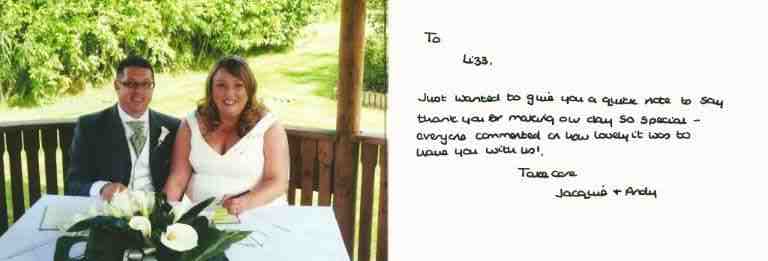 To
Lizz,
Just wanted to give you a quick note to say
thank you for making our day so special -
everyone commented on how lovely it was to
have you with us!.
Take care
Jacquie + Andy